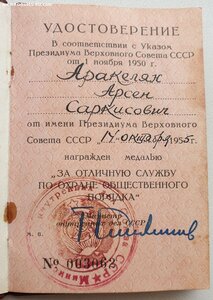 УДОСТОВЕРЕНИЕ
В соответствии с Указом
Президиума Верховного Совета СССР
от 1 ноября 1950 г.
Аракелян
Арсен
Саркисович
от имени Президиума Верховного
Совета СССР 14 октября 1955 г.
награжден медалью
"ЗА ОТЛИЧНУЮ СЛУЖБУ
ПО ОХРАНЕ ОБЩЕСТВЕННОГО
ПОРЯДКА"
Министр
внутренних дел СССР
м. п.
№ 003063